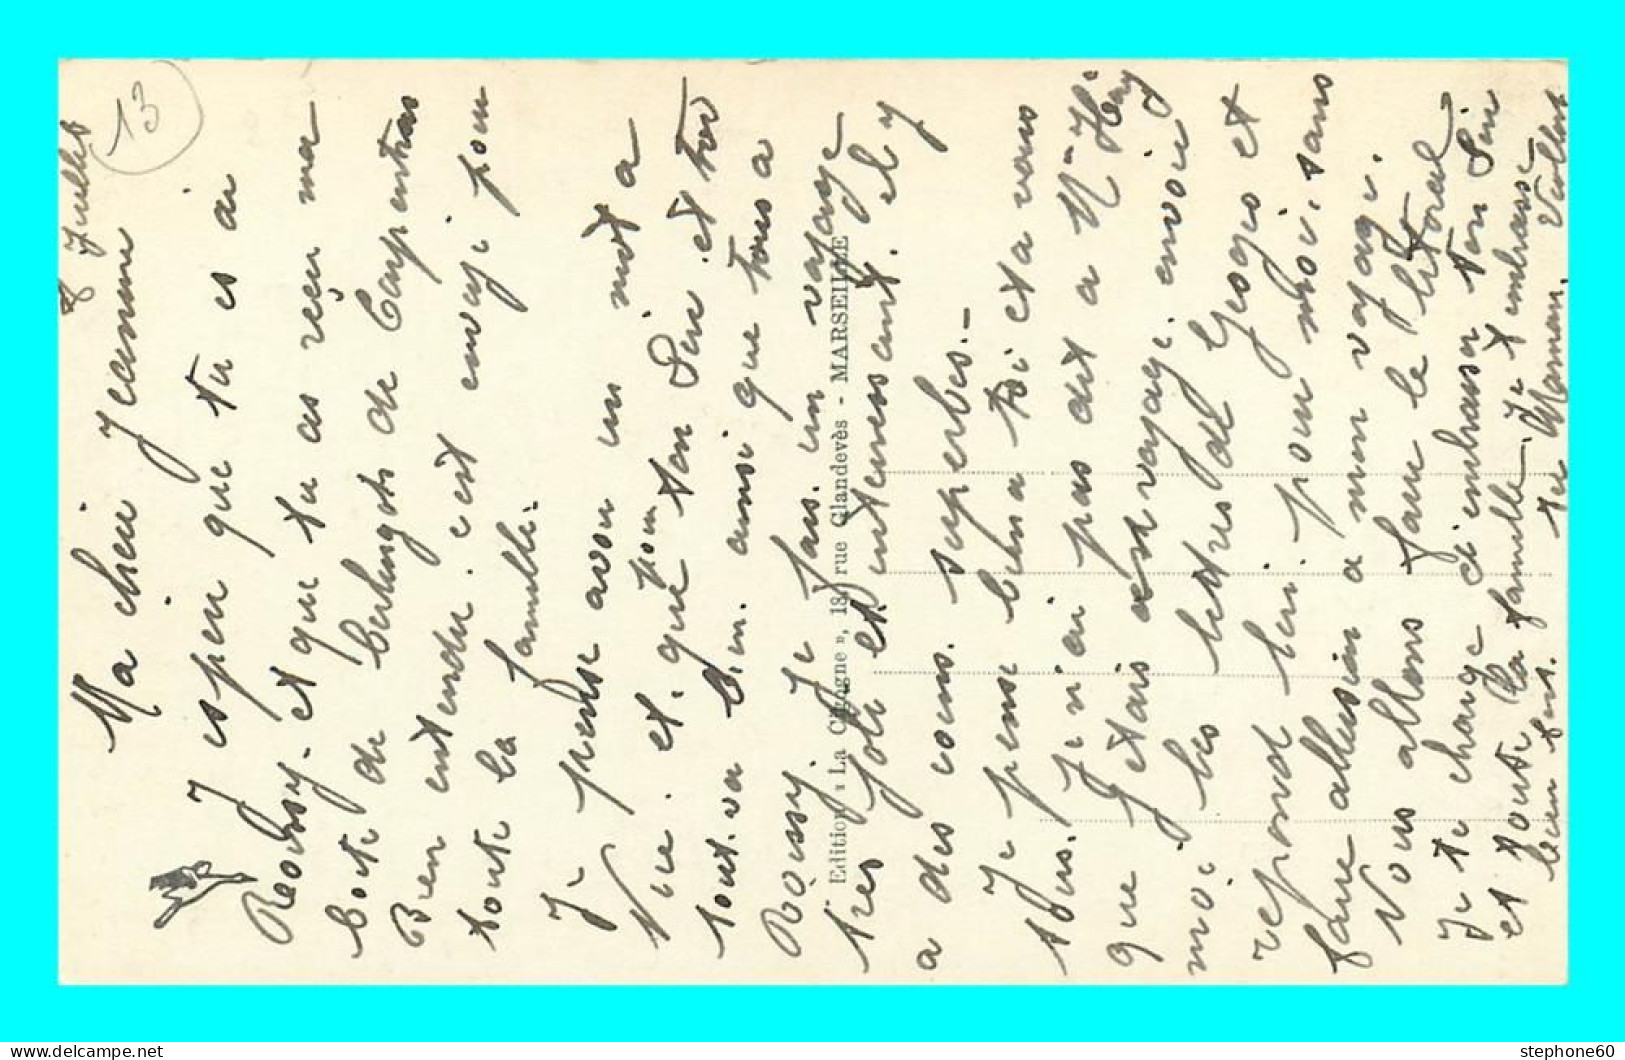 13
8 Juillet
Ma chère Jeanne
J'espere que tu es a
Roissy. et que tu as reçu ma
boite de berlingots de Carpentras
Bien entendu. c'est envoyé pour
toute la famille.
Je pense avoir un mot a
Nice. et. que pour ton Line et toi
tout. va bien. ainsi que tous a
Roissy. Je fais. un voyage
tres joli et interessant. il y
a des coins. superbes.-
Je pense bien a toi et a vous
tous. Je n'ai pas dit a Mme Hery
que J'etais en voyage. envoie
moi les lettres de Georges et
repond lui. pour moi. sans
faire allusion a mon voyage.
Nous allons faire le litoral
Je te charge d'embrasser ton Line
et toute la famille. Je t'embrasse
bien fort. ta Maman.
Edition « La Cigogne », 18, rue Glandevès - MARSEILLE
stephone60